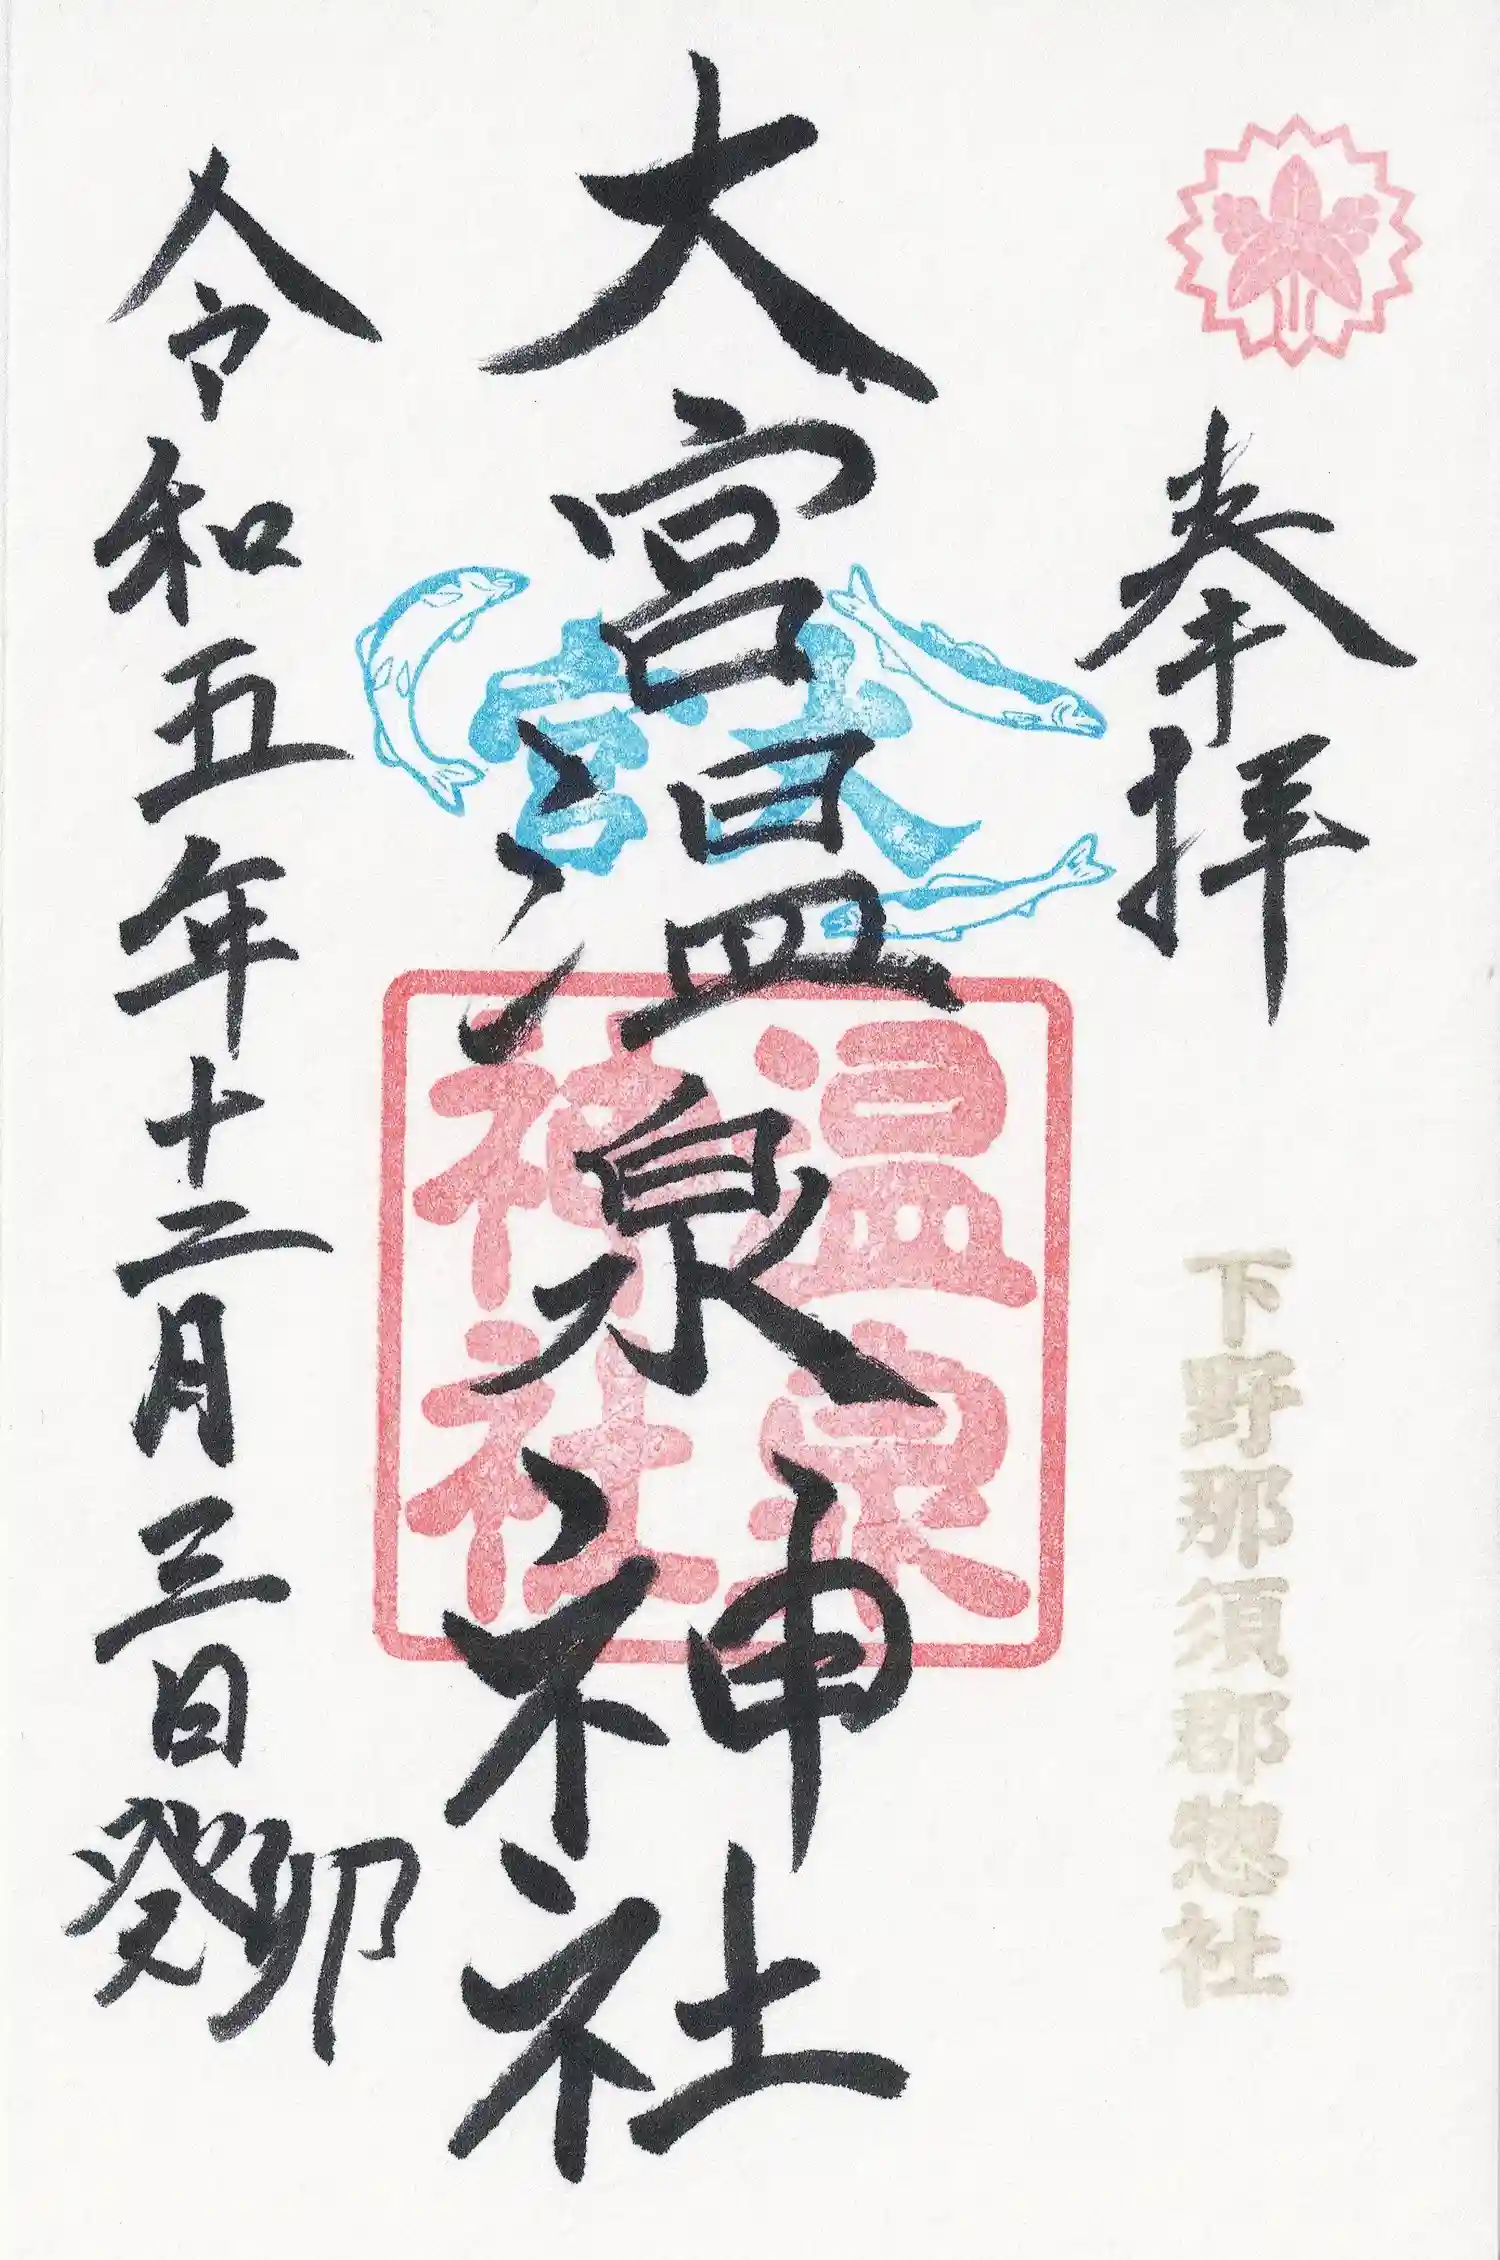 奉拝
下野那須郡惣社
大宮温泉神社
大宮
温泉
神社
令和五年十二月三日癸卯